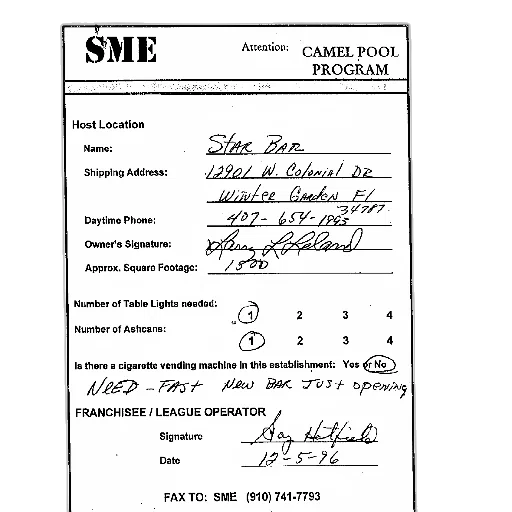 SME
Attention: CAMEL POOL
PROGRAM
Host Location
Name: Star Bar
Shipping Address: 12901 W. Colonial DR
Winter Garden Fl
34787
Daytime Phone: 407-654-1895
Owner's Signature: Larry L Leland
Approx. Square Footage: 1500
Number of Table Lights needed: 1 2 3 4
Number of Ashcans: 1 2 3 4
Is there a cigarette vending machine in this establishment: Yes or No
NEED - FAST New BAR JUST opening
FRANCHISEE / LEAGUE OPERATOR
Signature Hatfield
Date 12-5-96
FAX TO: SME (910) 741-7793